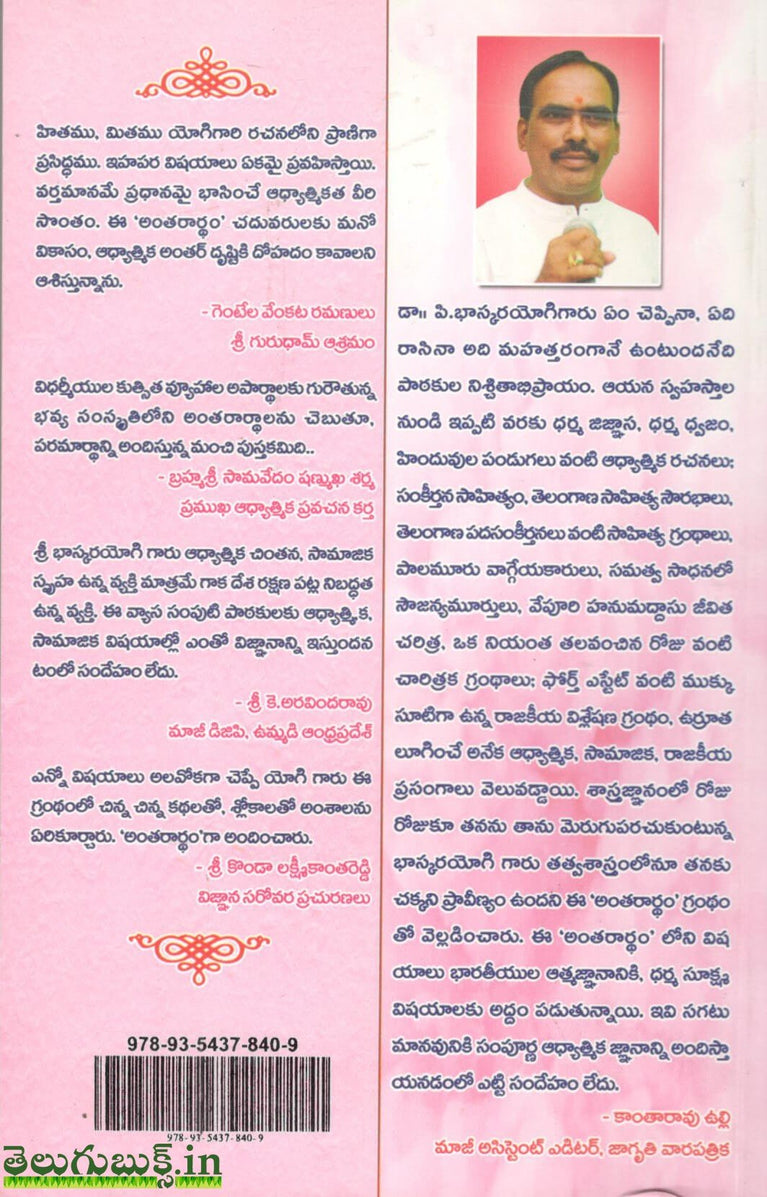 హితము, మితము యోగిగారి రచనలోని ప్రాణిగా
ప్రసిద్ధము. ఇహపర విషయాలు ఏకమై ప్రవహిస్తాయి.
వర్తమానమే ప్రధానమై భాసించే ఆధ్యాత్మికత వీరి
సొంతం. ఈ ‘అంతరార్థం’ చదువరులకు మనో
వికాసం, ఆధ్యాత్మిక అంతర్ దృష్టికి దోహదం కావాలని
ఆశిస్తున్నాను.
- గెంటేల వేంకట రమణులు
శ్రీ గురుధామ్ ఆశ్రమం
విధర్మీయుల కుత్సిత వ్యూహాల అపార్థాలకు గురౌతున్న
భవ్య సంస్కృతిలోని అంతరార్థాలను చెబుతూ,
పరమార్థాన్ని అందిస్తున్న మంచి పుస్తకమిది..
- బ్రహ్మశ్రీ సామవేదం షణ్ముఖ శర్మ
ప్రముఖ ఆధ్యాత్మిక ప్రవచన కర్త
శ్రీ భాస్కరయోగి గారు ఆధ్యాత్మిక చింతన, సామాజిక
స్పృహ ఉన్న వ్యక్తి మాత్రమే గాక దేశ రక్షణ పట్ల నిబద్ధత
ఉన్న వ్యక్తి. ఈ వ్యాస సంపుటి పాఠకులకు ఆధ్యాత్మిక,
సామాజిక విషయాల్లో ఎంతో విజ్ఞానాన్ని ఇస్తుందన
టంలో సందేహం లేదు.
- శ్రీ కె.అరవిందరావు
మాజీ డిజిపి, ఉమ్మడి ఆంధ్రప్రదేశ్
ఎన్నో విషయాలు అలవోకగా చెప్పే యోగి గారు ఈ
గ్రంథంలో చిన్న చిన్న కథలతో, శ్లోకాలతో అంశాలను
ఏరికూర్చారు. ‘అంతరార్థం’గా అందించారు.
- శ్రీ కొండా లక్ష్మీకాంతరెడ్డి
విజ్ఞాన సరోవర ప్రచురణలు
978-93-5437-840-9
978-93-5437-840-9
తెలుగుబుక్స్.in
డా॥ పి.భాస్కరయోగిగారు ఏం చెప్పినా, ఏది
రాసినా అది మహత్తరంగానే ఉంటుందనేది
పాఠకుల నిశ్చితాభిప్రాయం. ఆయన స్వహస్తాల
నుండి ఇప్పటి వరకు ధర్మ జిజ్ఞాస, ధర్మ ధ్వజం,
హిందువుల పండుగలు వంటి ఆధ్యాత్మిక రచనలు;
సంకీర్తన సాహిత్యం, తెలంగాణ సాహిత్య సౌరభాలు,
తెలంగాణ పదసంకీర్తనలు వంటి సాహిత్య గ్రంథాలు,
పాలమూరు వాగ్గేయకారులు, సమత్వ సాధనలో
సౌజన్యమూర్తులు, వేపూరి హనుమద్దాసు జీవిత
చరిత్ర, ఒక నియంత తలవంచిన రోజు వంటి
చారిత్రక గ్రంథాలు; ఫోర్త్ ఎస్టేట్ వంటి ముక్కు
సూటిగా ఉన్న రాజకీయ విశ్లేషణ గ్రంథం, ఉర్రూత
లూగించే అనేక ఆధ్యాత్మిక, సామాజిక, రాజకీయ
ప్రసంగాలు వెలువడ్డాయి. శాస్త్రజ్ఞానంలో రోజు
రోజుకూ తనను తాను మెరుగుపరచుకుంటున్న
భాస్కరయోగి గారు తత్వశాస్త్రంలోనూ తనకు
చక్కని ప్రావీణ్యం ఉందని ఈ ‘అంతరార్థం’ గ్రంథం
తో వెల్లడించారు. ఈ ‘అంతరార్థం’ లోని విష
యాలు భారతీయుల ఆత్మజ్ఞానానికి, ధర్మ సూక్ష్మ
విషయాలకు అద్దం పడుతున్నాయి. ఇవి సగటు
మానవునికి సంపూర్ణ ఆధ్యాత్మిక జ్ఞానాన్ని అందిస్తా
యనడంలో ఎట్టి సందేహం లేదు.
- కాంతారావు ఉల్లి
మాజీ అసిస్టెంట్ ఎడిటర్, జాగృతి వారపత్రిక